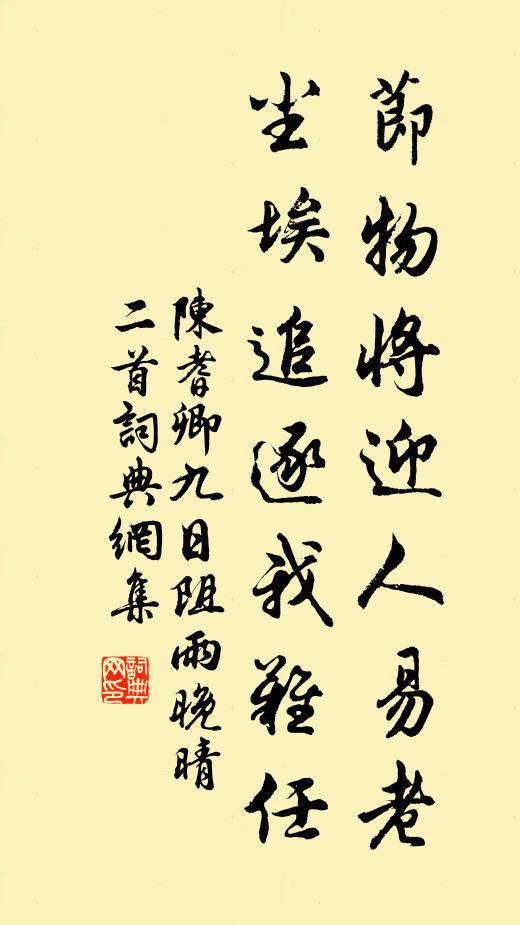 節物將迎人易老
尘埃追逐我難任
陳耆卿九日阻雨晚晴
二首詞典網集
詞典
网印